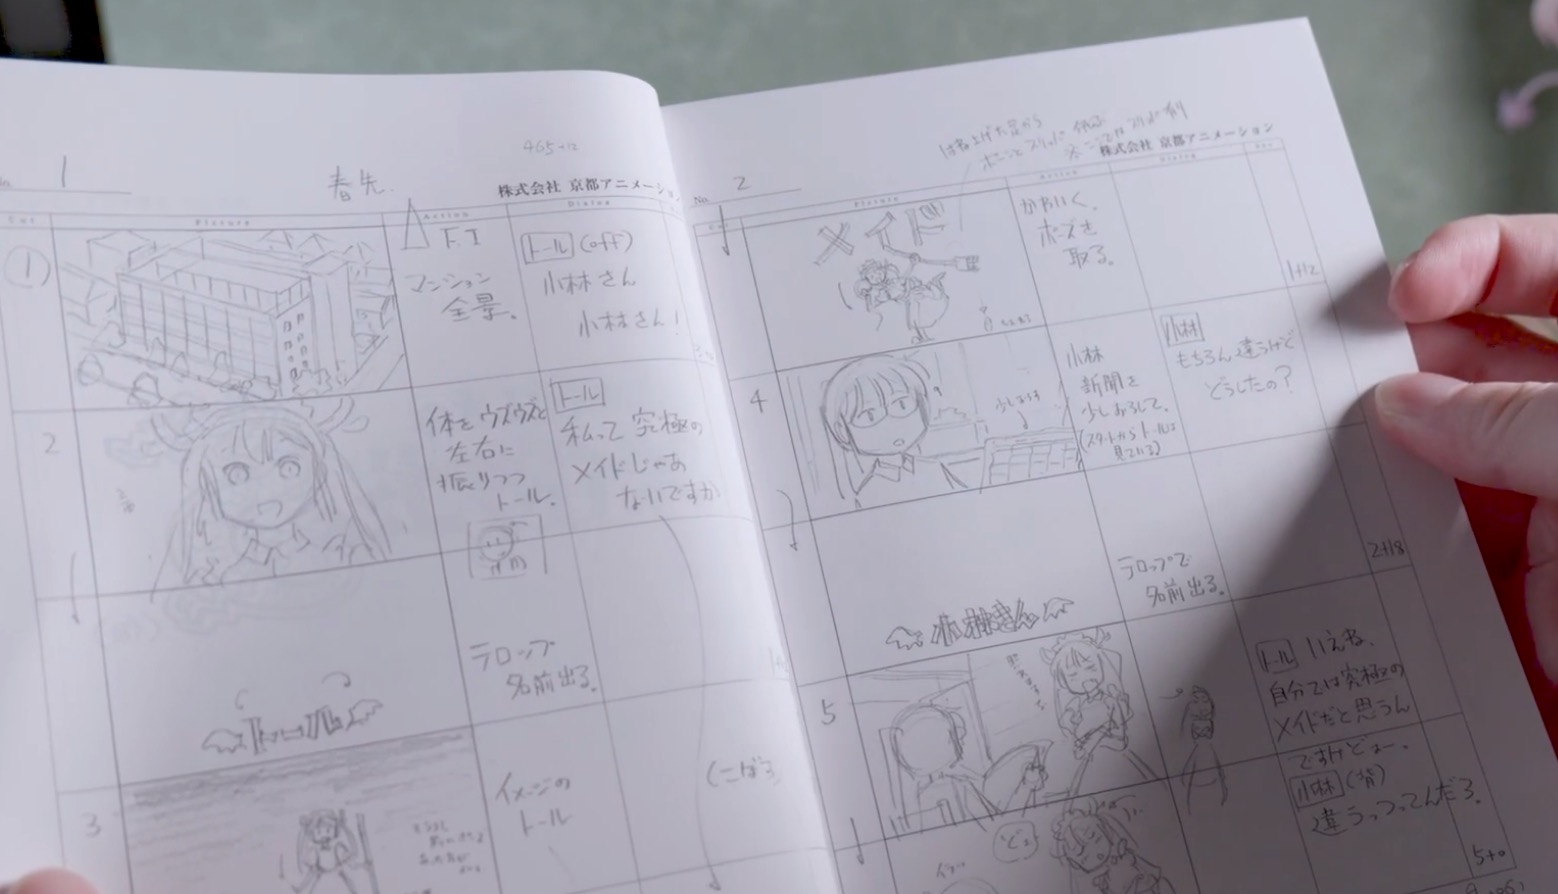 465+12
No. 1
春先.
株式会社 京都アニメーション
Cut Picture Action Dialog
1
F.I
マンション
全景。
トール (off)
小林さん
小林さん!
2
体をウズウズと
左右に
振りつつ
トール.
トール
私って究極の
メイドじゃあ
ないですか
テロップ
名前出る。
トール
3
イメージの
トール
(こぼう)
No. 2
株式会社 京都アニメーション
Picture Action Dialog
メイド
かわいく。
ポーズを
取る。
1+12
4
小林
新聞を
少しおろして。
(スタートからトールは
見ている)
小林
もちろん違うけど
どうしたの?
2+18
テロップで
名前出る。
小林さん
5
トール いえね、
自分では究極の
メイドだと思うん
ですけどねー.
小林 (背)
違うっつってんだろ.
5+0